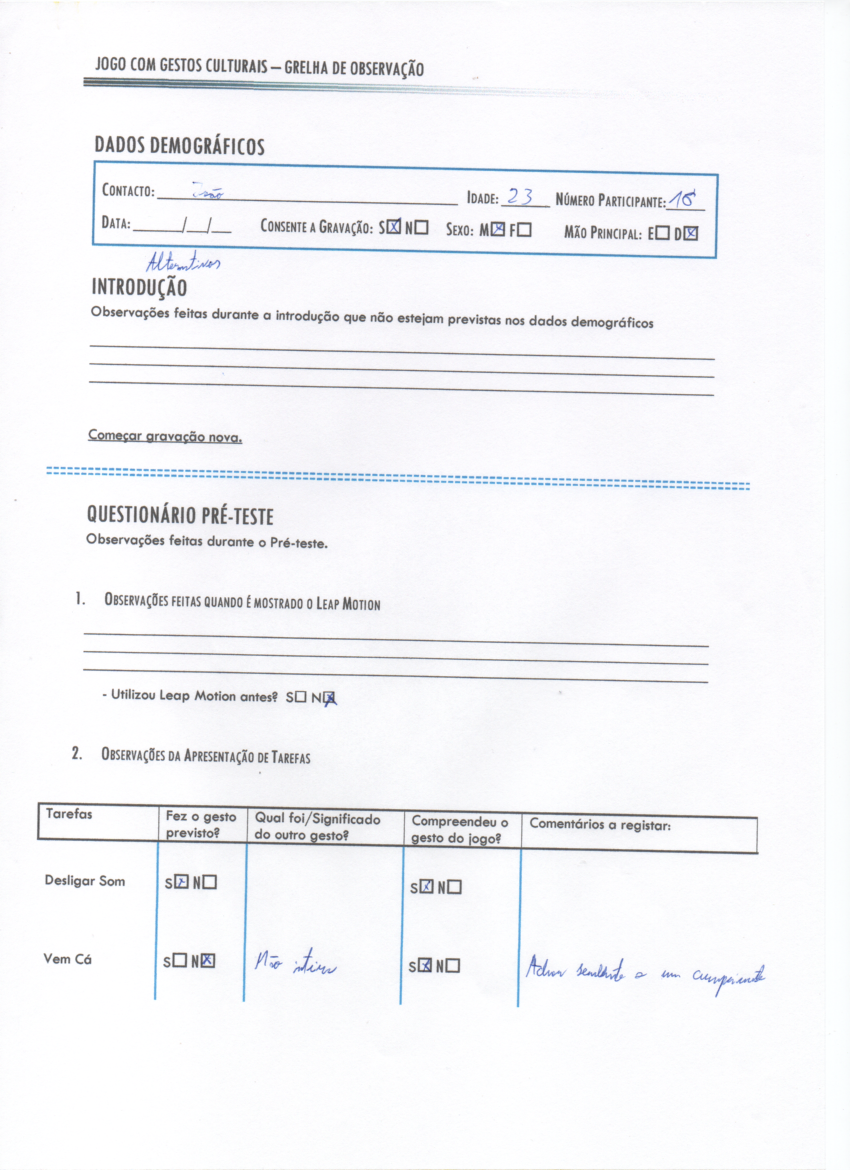 JOGO COM GESTOS CULTURAIS – GRELHA DE OBSERVAÇÃO
DADOS DEMOGRÁFICOS
CONTACTO: IDADE: 23 NÚMERO PARTICIPANTE: 18
DATA: ____/__/__ CONSENTE A GRAVAÇÃO: S☒ N☐ SEXO: M☒ F☐ MÃO PRINCIPAL: E☐ D☒
Alternativos
INTRODUÇÃO
Observações feitas durante a introdução que não estejam previstas nos dados demográficos
Começar gravação nova.
QUESTIONÁRIO PRÉ-TESTE
Observações feitas durante o Pré-teste.
1. OBSERVAÇÕES FEITAS QUANDO É MOSTRADO O LEAP MOTION
- Utilizou Leap Motion antes? S☐ N☒
2. OBSERVAÇÕES DA APRESENTAÇÃO DE TAREFAS
Tarefas Fez o gesto previsto? Qual foi/Significado do outro gesto? Compreendeu o gesto do jogo? Comentários a registar:
Desligar Som S☒ N☐ S☒ N☐
Vem Cá S☐ N☒ Não S☒ N☐ semelhante a um cumprimento